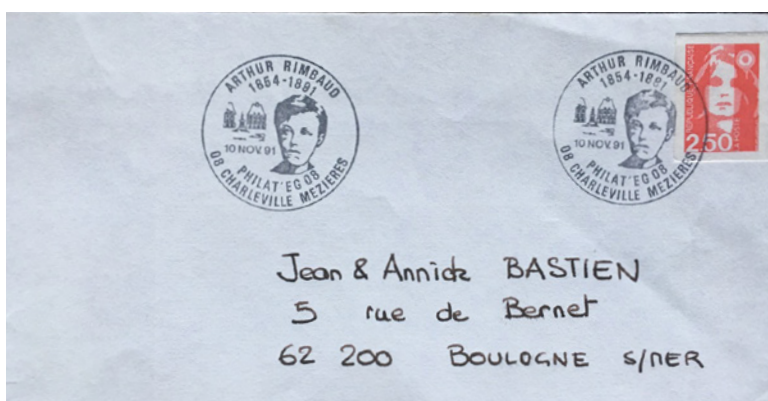 ARTHUR RIMBAUD
1854-1891
10 NOV. 91
PHILAT'EG 08
08 CHARLEVILLE MEZIERES
ARTHUR RIMBAUD
1854-1891
10 NOV. 91
PHILAT'EG 08
08 CHARLEVILLE MEZIERES
REPUBLIQUE FRANÇAISE
2,50
LA POSTE
Jean & Annick BASTIEN
5 rue de Bernet
62 200 BOULOGNE S/MER